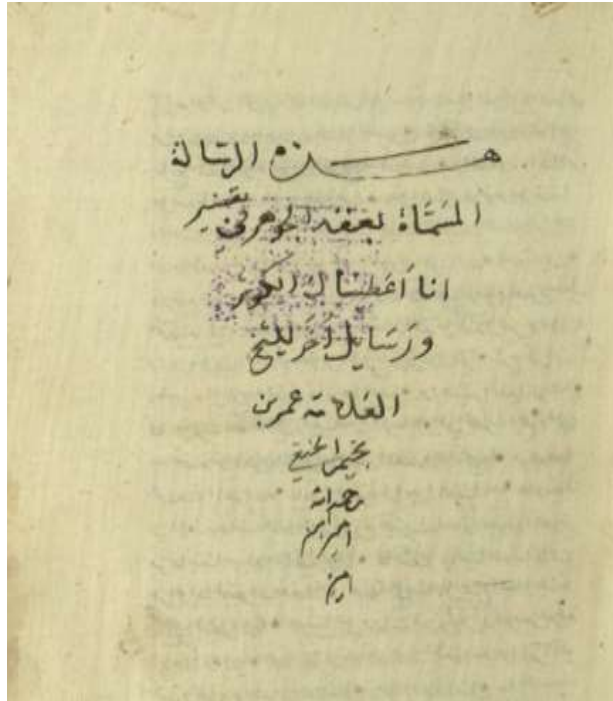 هذه الرسالة
المسَمَّاة بعقد الجوهر في تفسير
انا اعَطيناك الكوثر
ورَسَايل أُخَر للشيخ
العَلامة عمر بن
نجيم الحنفي
رحمه الله
امين